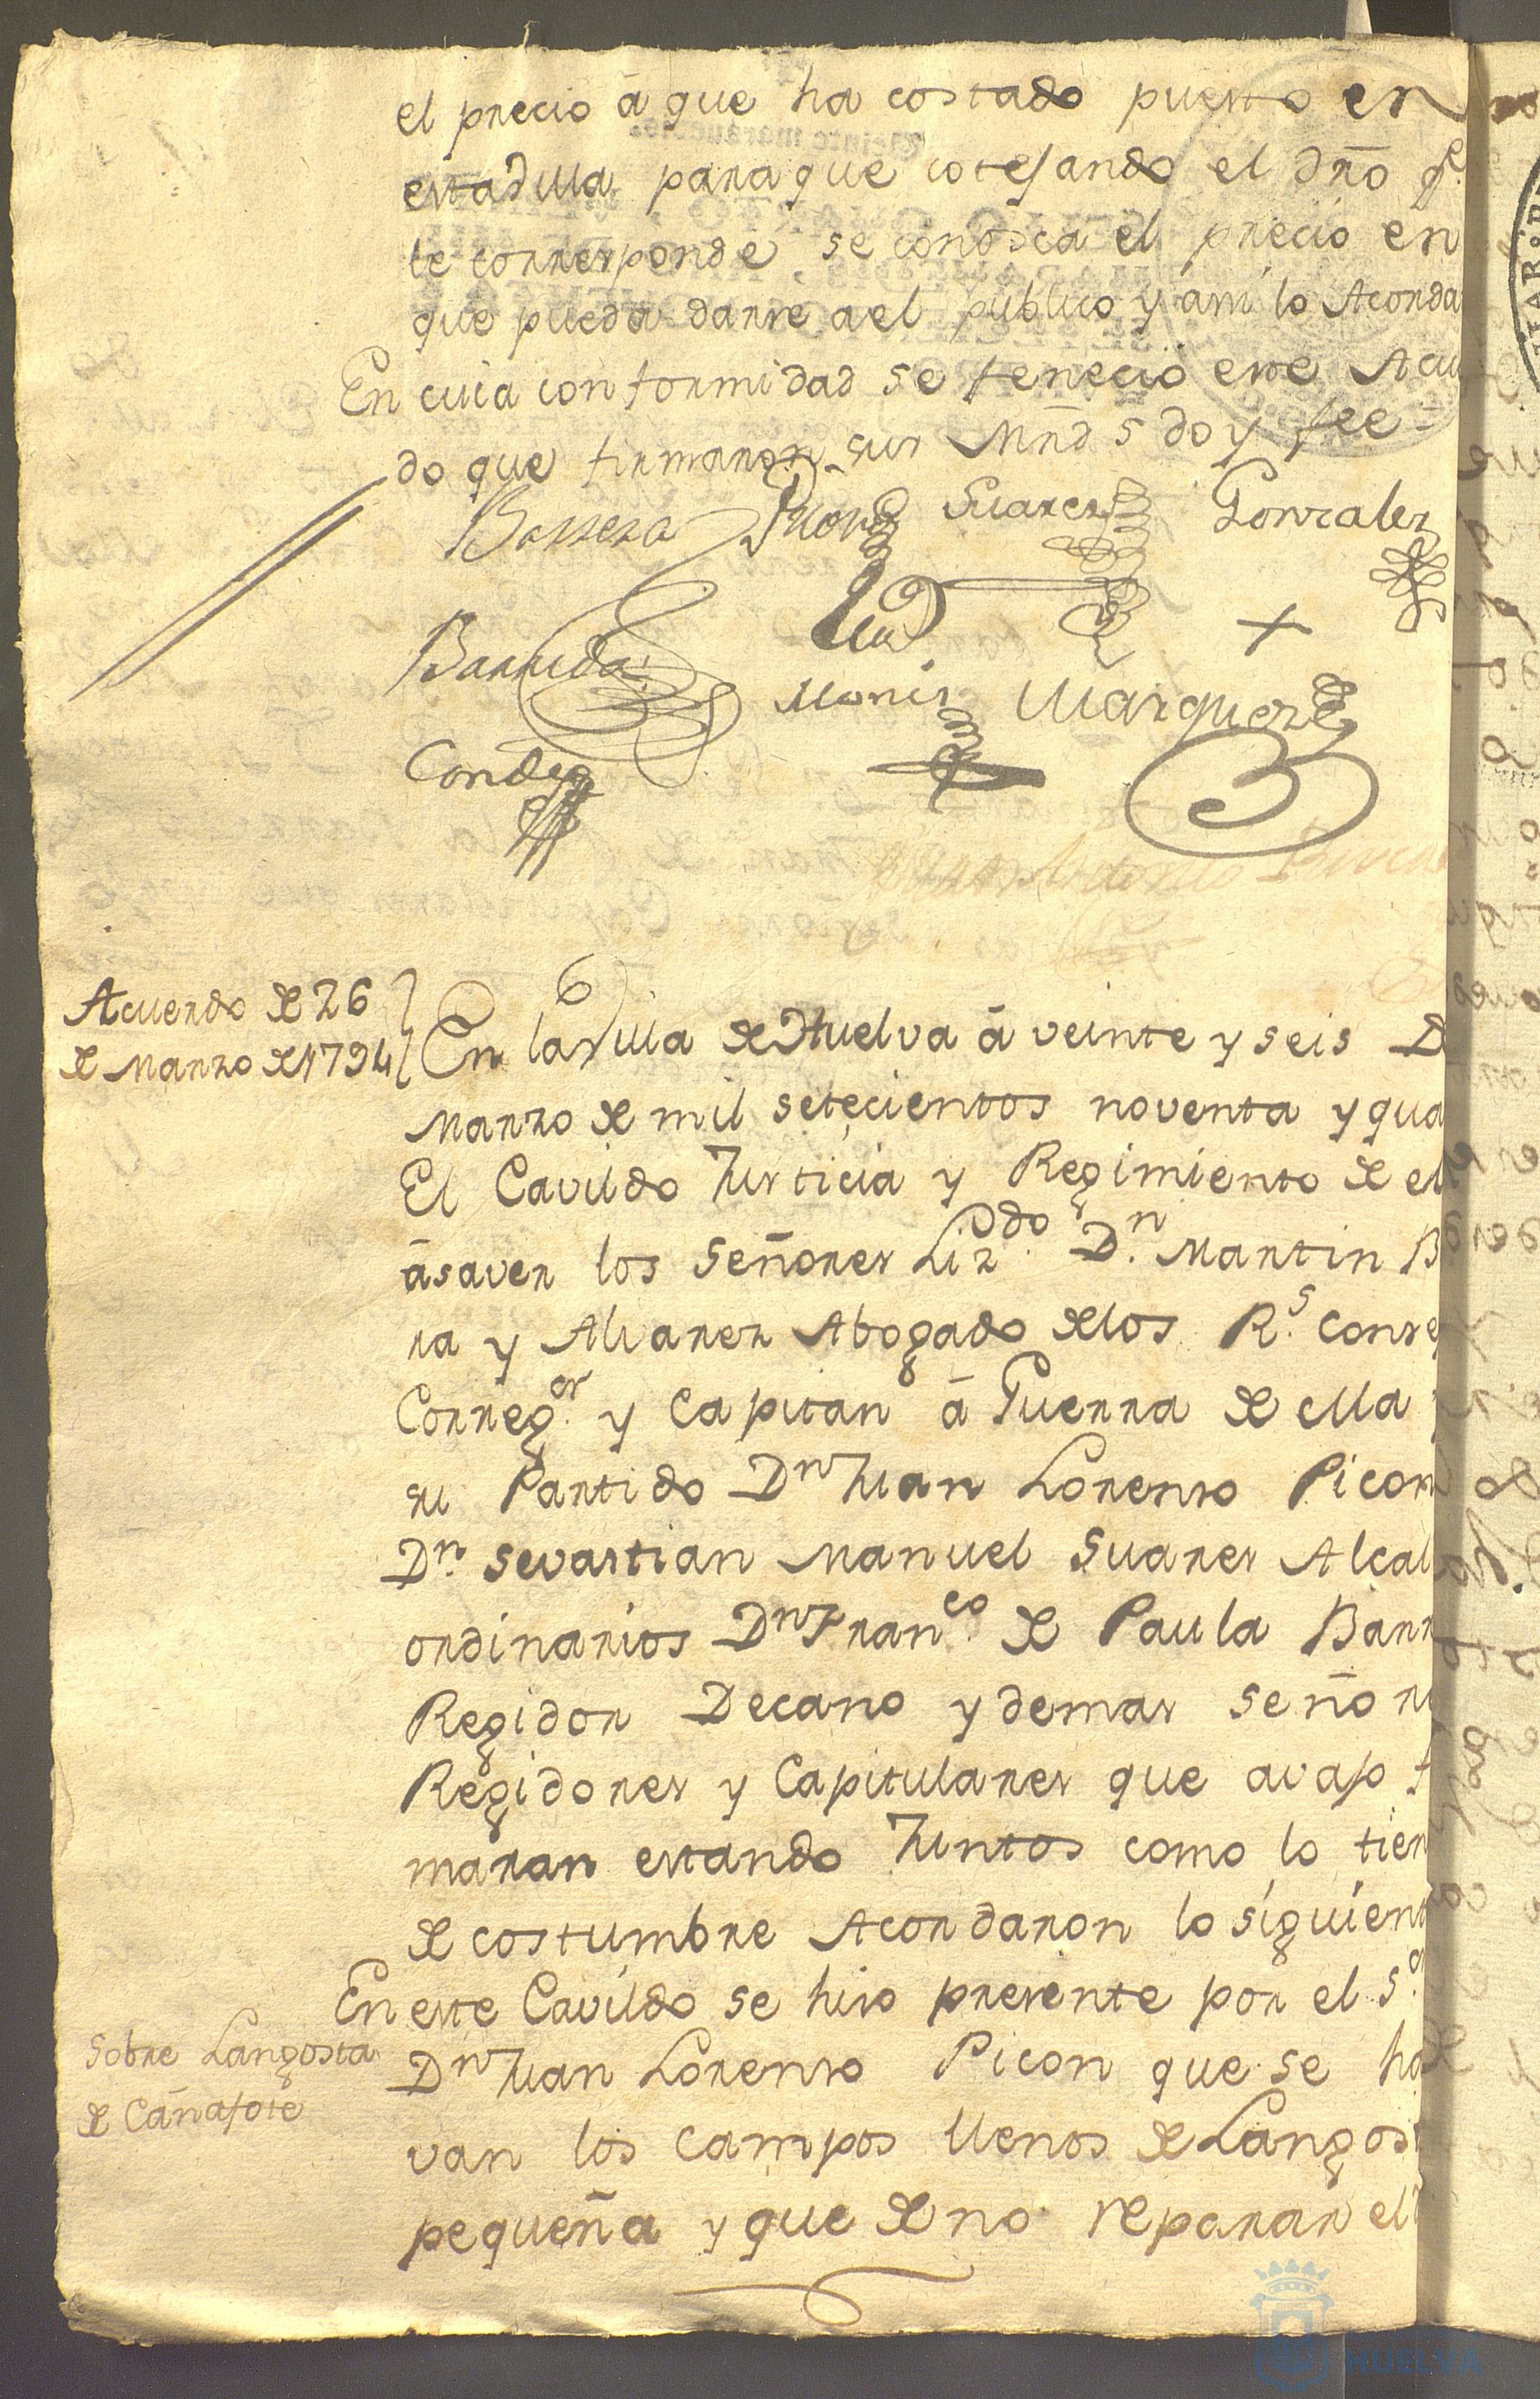 el precio á que ha costado puesto en
esta dilla para que cotejando el dr̃o q.e
le corresponde se conosca el precio en
que pueda darse a el publico y ási lo Acorda
En cuia conformidad se feneció este Acu
do que firmaron sus Mrd̃s doy fee =
Barrera Picon Suarez Gonzalez
Barreda Monis Marquez
Conde
Acuerdo de 26
de Marzo de 1794
En la villa de Huelva á veinte y seis D
Marzo de mil setecientos noventa y qua
El Cavildo Justicia y Regimiento de el
ásaver los Señores Liz.do D.n Martin B
ra y Alvarez Abogado delos R.s Conse
Correg.or y Capitan á Guerra de ella
su Partido D.n Juan Lorenso Picon
D.n Sevastian Manuel Suares Alcal
ordinarios D.n Fran.co de Paula Barr
Regidor Decano y demas Señor
Regidores y Capitulares que avajo f
maran estando Juntos como lo tien
de costumbre Acordaron lo siguient
En este Cavildo se hiso presente por el S.r
Sobre Langosta
de Cañafote
D.n Juan Lorenso Picon que se ha
van los campos llenos de Langost
pequeña y que de no reparar el
HUELVA